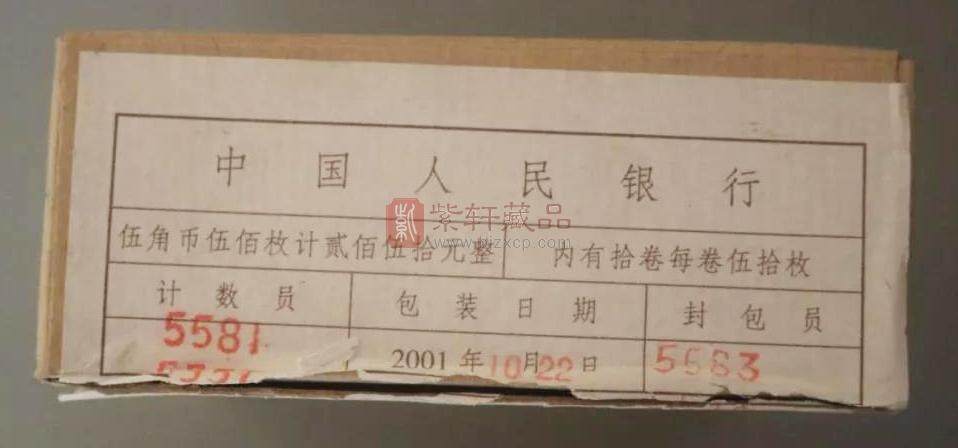 中国人民银行
紫轩藏品
伍角币伍佰枚计贰佰伍拾元整 内有拾卷每卷伍拾枚
计数员 包装日期 封包员
5581 2001年10月22日 5663